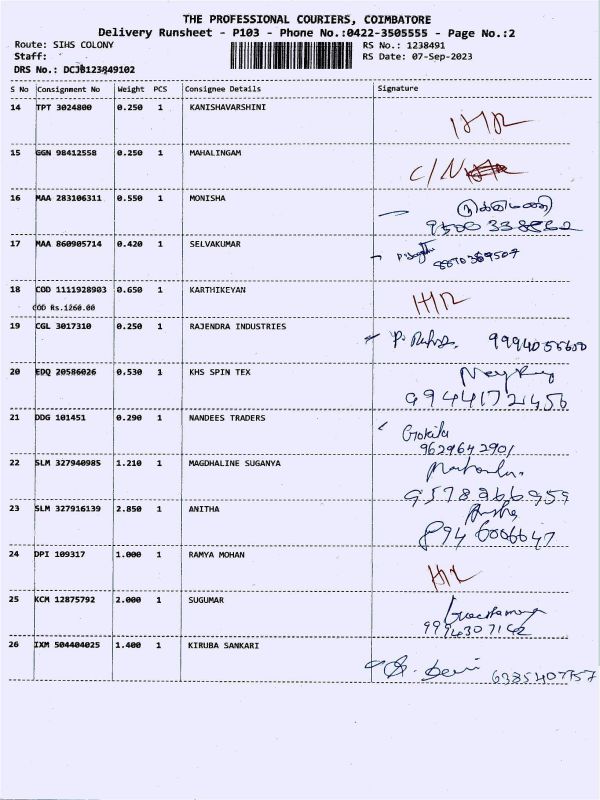 THE PROFESSIONAL COURIERS, COIMBATORE
Delivery Runsheet - P103 - Phone No.:0422-3505555 - Page No.:2
Route: SIHS COLONY RS No.: 1238491
Staff: RS Date: 07-Sep-2023
DRS No.: DCJB123849102
S No Consignment No Weight PCS Consignee Details Signature
14 TPT 3024800 0.250 1 KANISHAVARSHINI
15 GGN 98412558 0.250 1 MAHALINGAM C/N
16 MAA 283106311 0.550 1 MONISHA
17 MAA 860905714 0.420 1 SELVAKUMAR
18 COD 1111928903 0.650 1 KARTHIKEYAN
COD Rs.1260.00
19 CGL 3017310 0.250 1 RAJENDRA INDUSTRIES
20 EDQ 20586026 0.530 1 KHS SPIN TEX
9944172456
21 DDG 101451 0.290 1 NANDEES TRADERS
Gokila
9629642901
22 SLM 327940985 1.210 1 MAGDHALINE SUGANYA
9578266959
23 SLM 327916139 2.850 1 ANITHA
8946006647
24 DPI 109317 1.000 1 RAMYA MOHAN
25 KCM 12875792 2.000 1 SUGUMAR
9994307142
26 IXM 504404025 1.400 1 KIRUBA SANKARI
6385407757